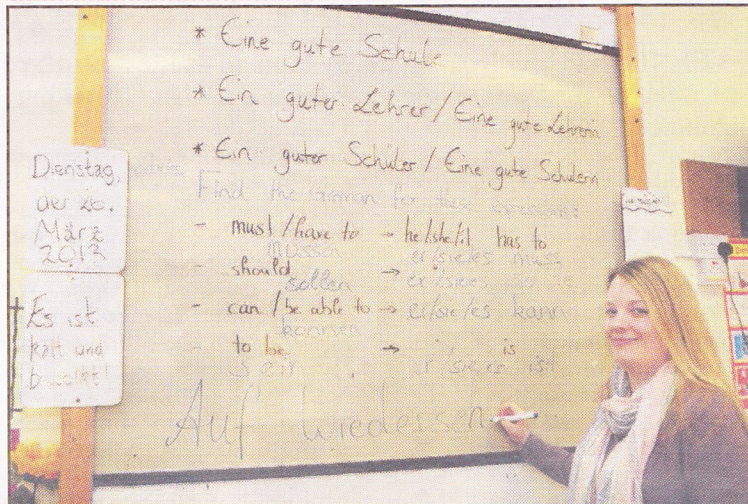 * Eine gute Schule
* Ein guter Lehrer / Eine gute Lehrerin
* Ein guter Schüler / Eine gute Schulern
Find the German for these expressions
- must / have to → he/she/it has to
müssen er/sie/es muss
- should →
sollen er/sie/es
- can / be able to → er/sie/es kann
konnen
- to be → is
sein er/sie/es ist
Auf Wiedersen
Dienstag,
der 26.
März
2013
Es ist
kalt und
bewolkt!